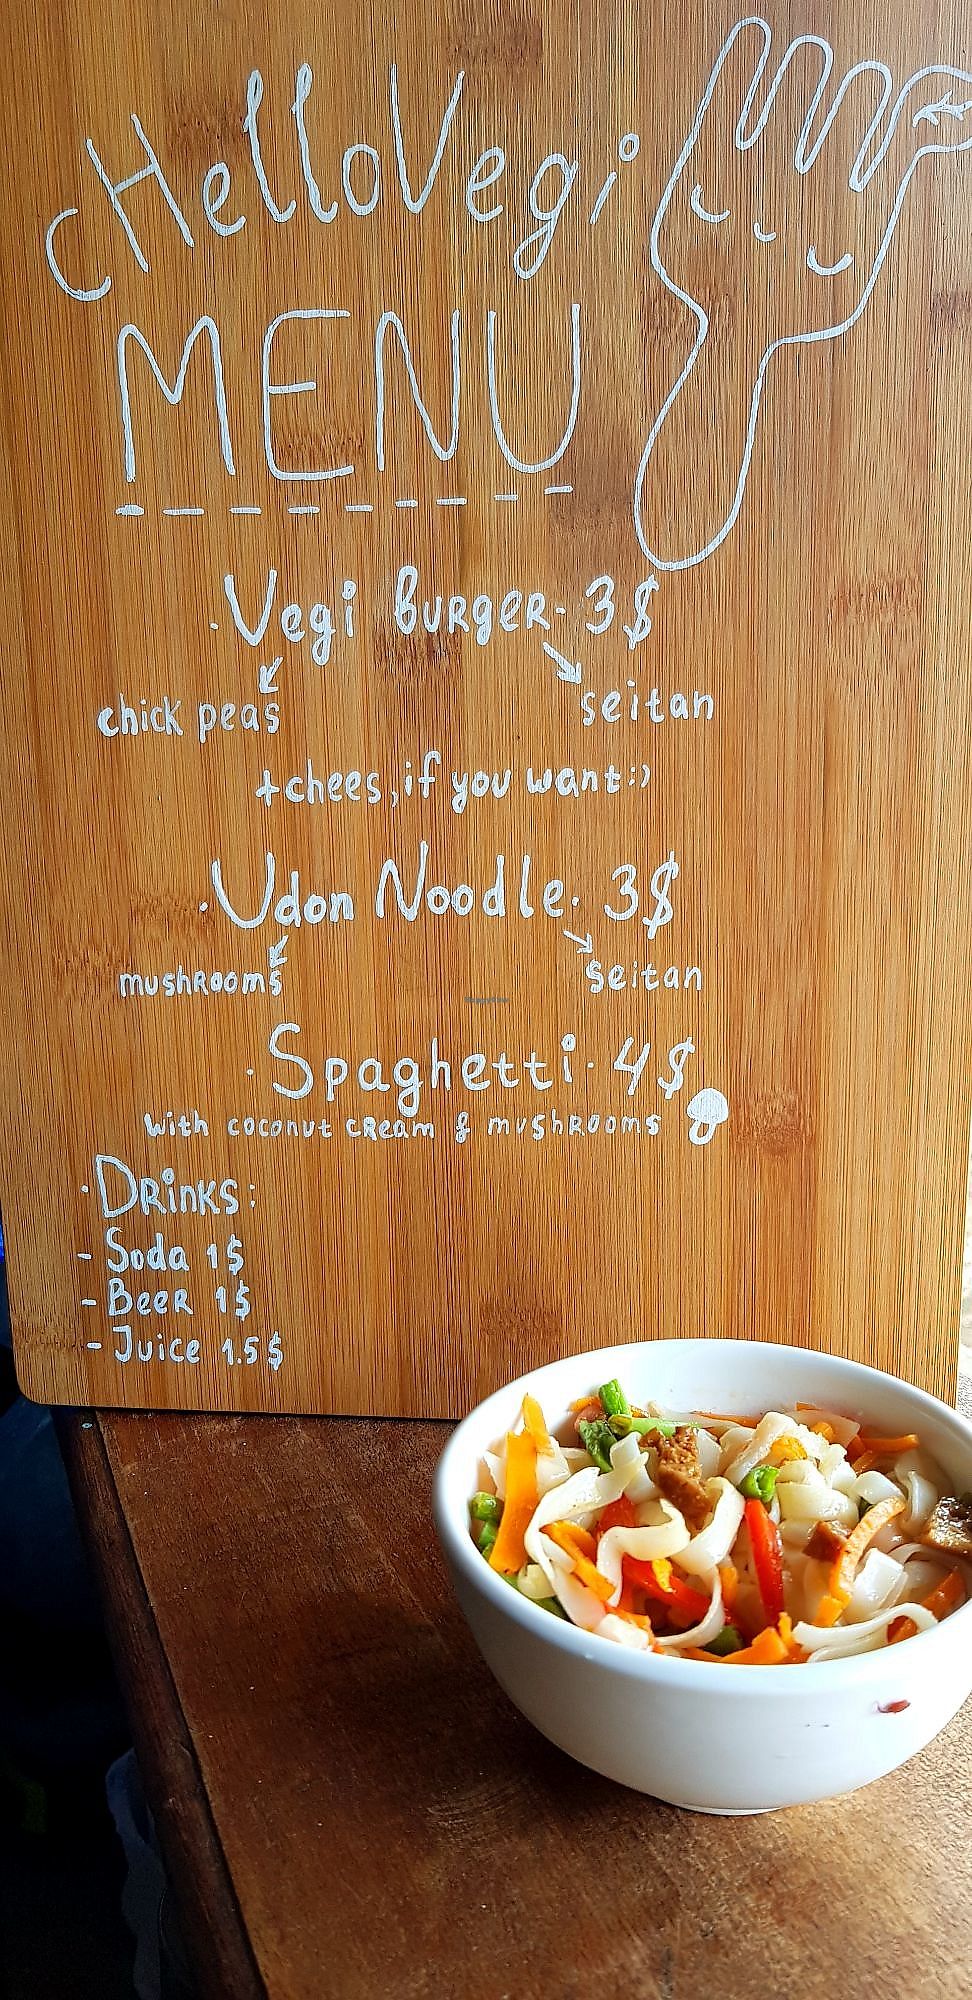 HelloVegi
MENU
· Vegi Burger · 3$
chick peas seitan
+chees, if you want:)
· Udon Noodle · 3$
mushrooms seitan
· Spaghetti · 4$
With coconut cream & mushrooms
· Drinks:
- Soda 1$
- Beer 1$
- Juice 1.5$